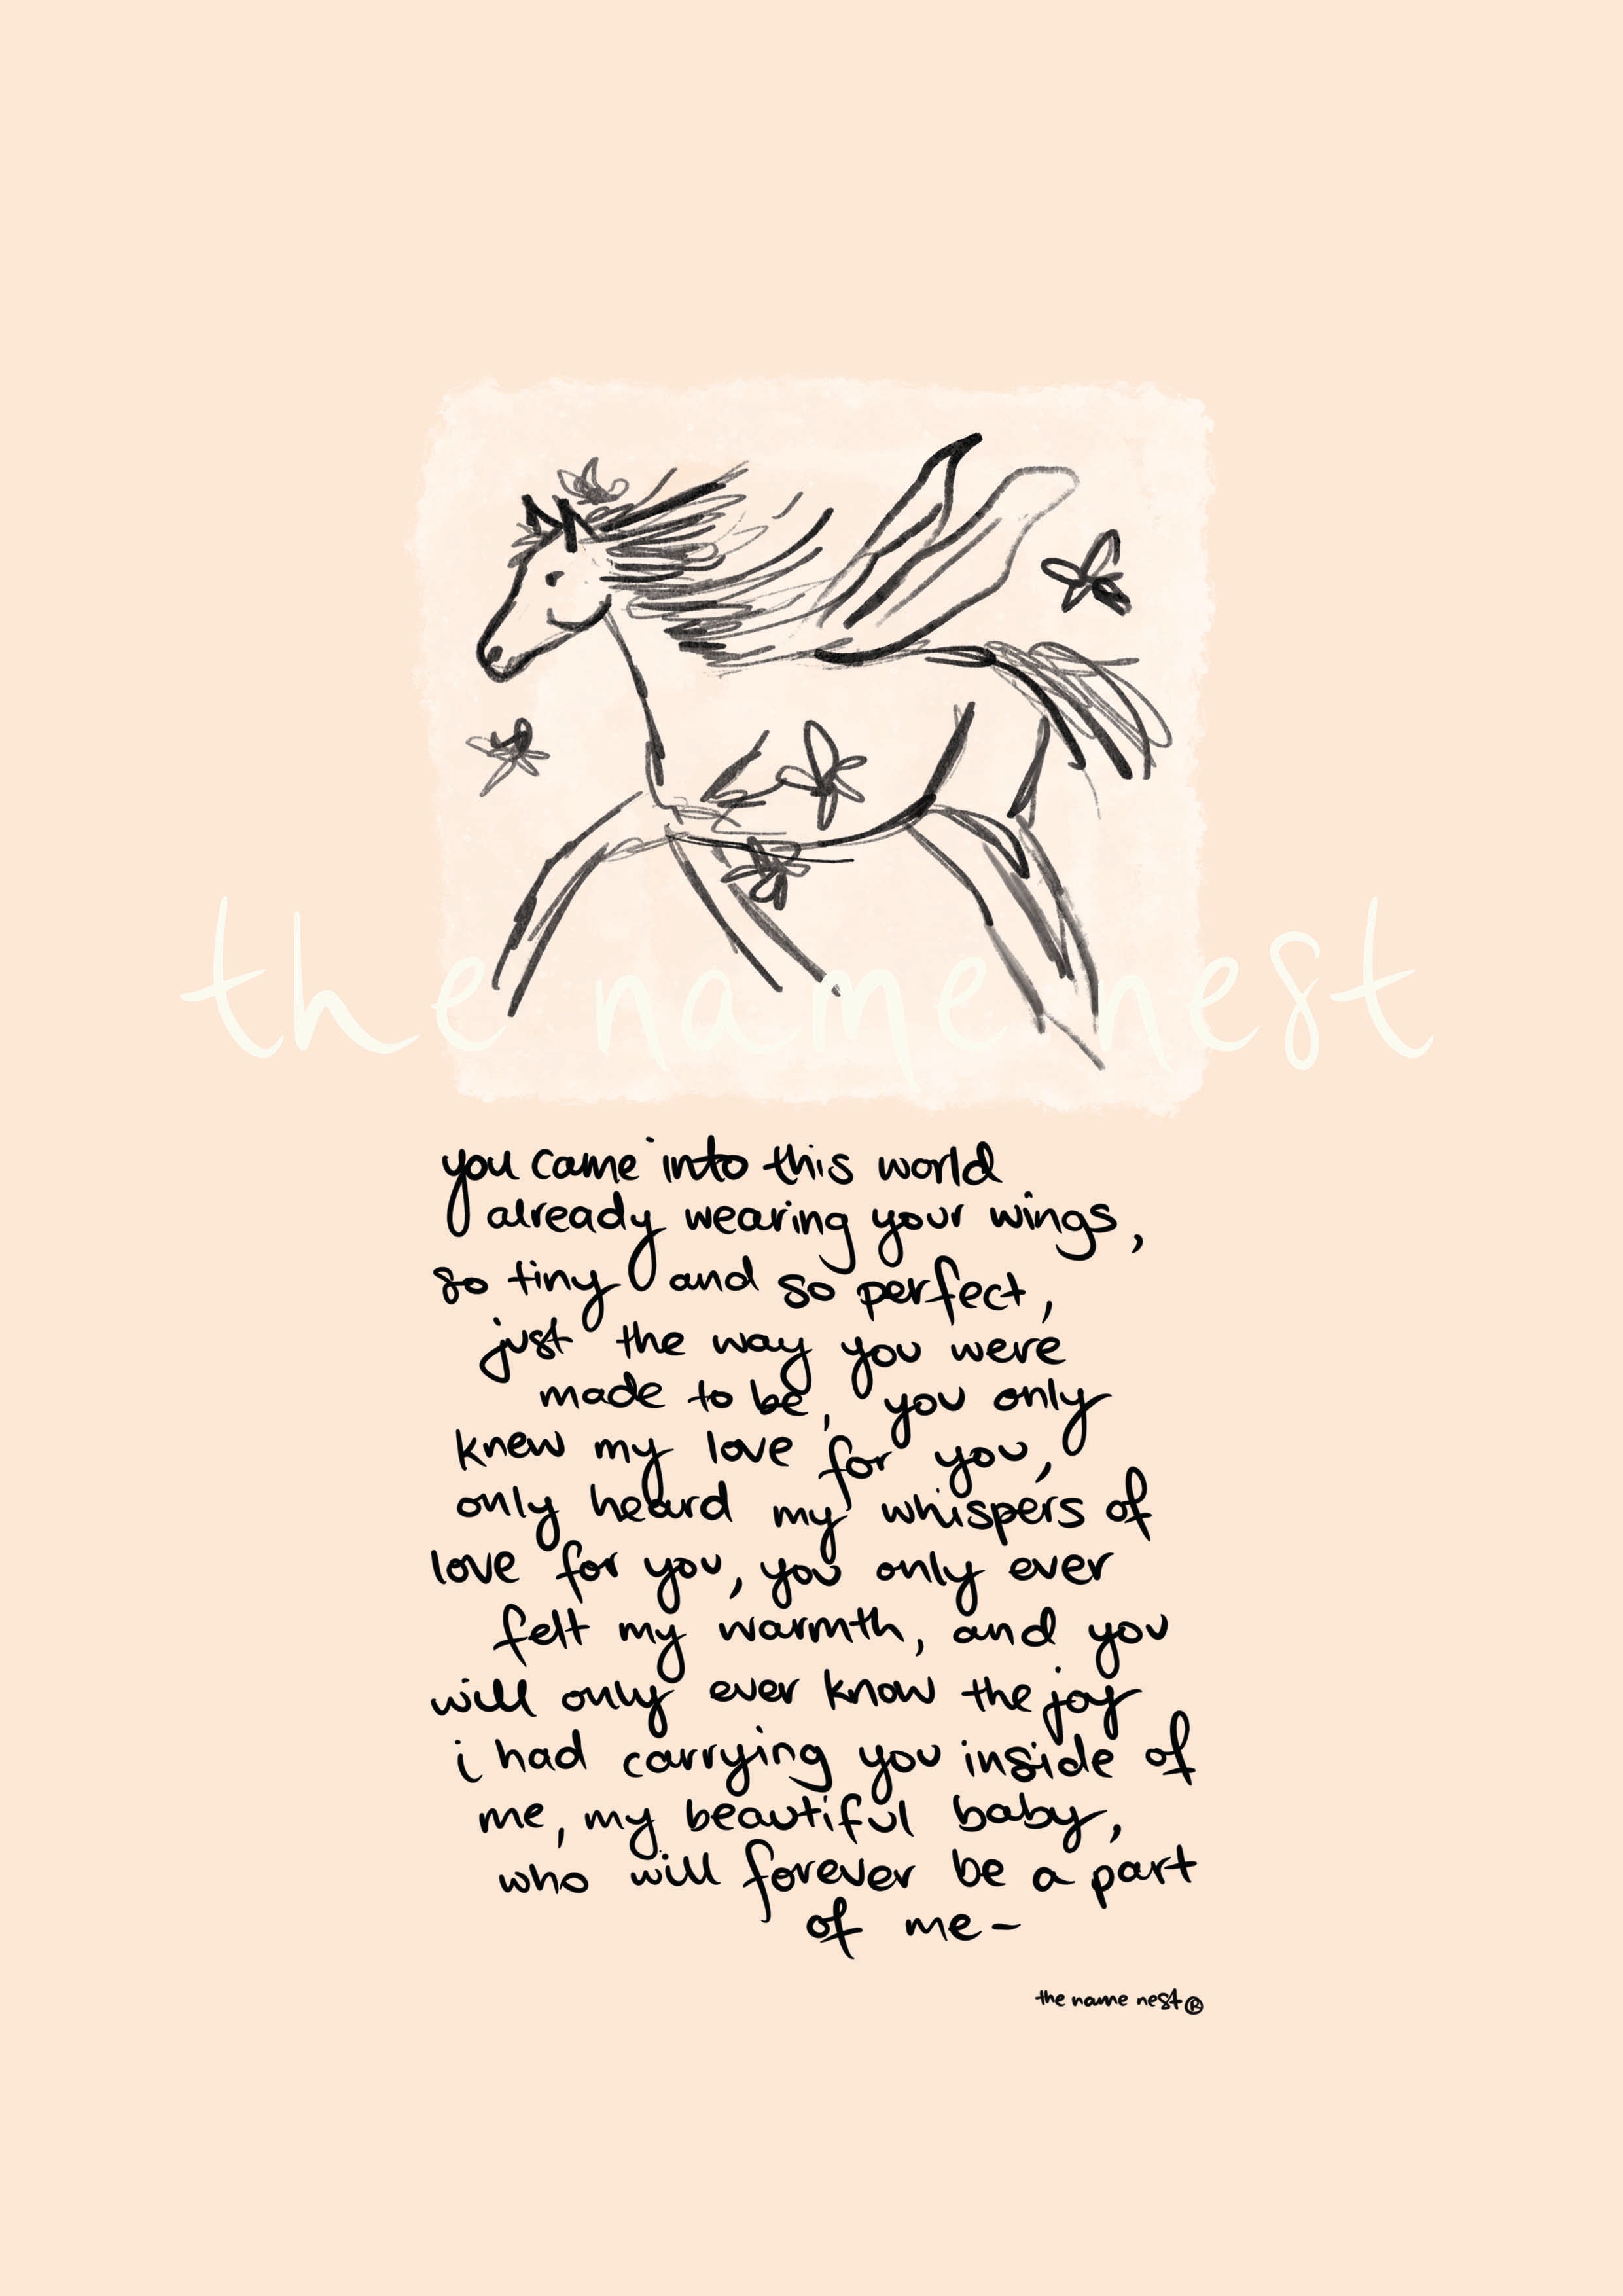 the name nest
you came into this world
already wearing your wings,
so tiny and so perfect,
just the way you were
made to be, you only
knew my love for you,
only heard my whispers of
love for you, you only ever
felt my warmth, and you
will only ever know the joy
i had carrying you inside of
me, my beautiful baby,
who will forever be a part
of me-
the name nest®